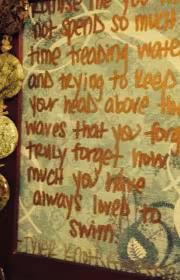 promise me you will
not spend so much
time treading water
and trying to keep
your head above the
waves that you forget,
truly forget how
much you have
always loved to
swim.